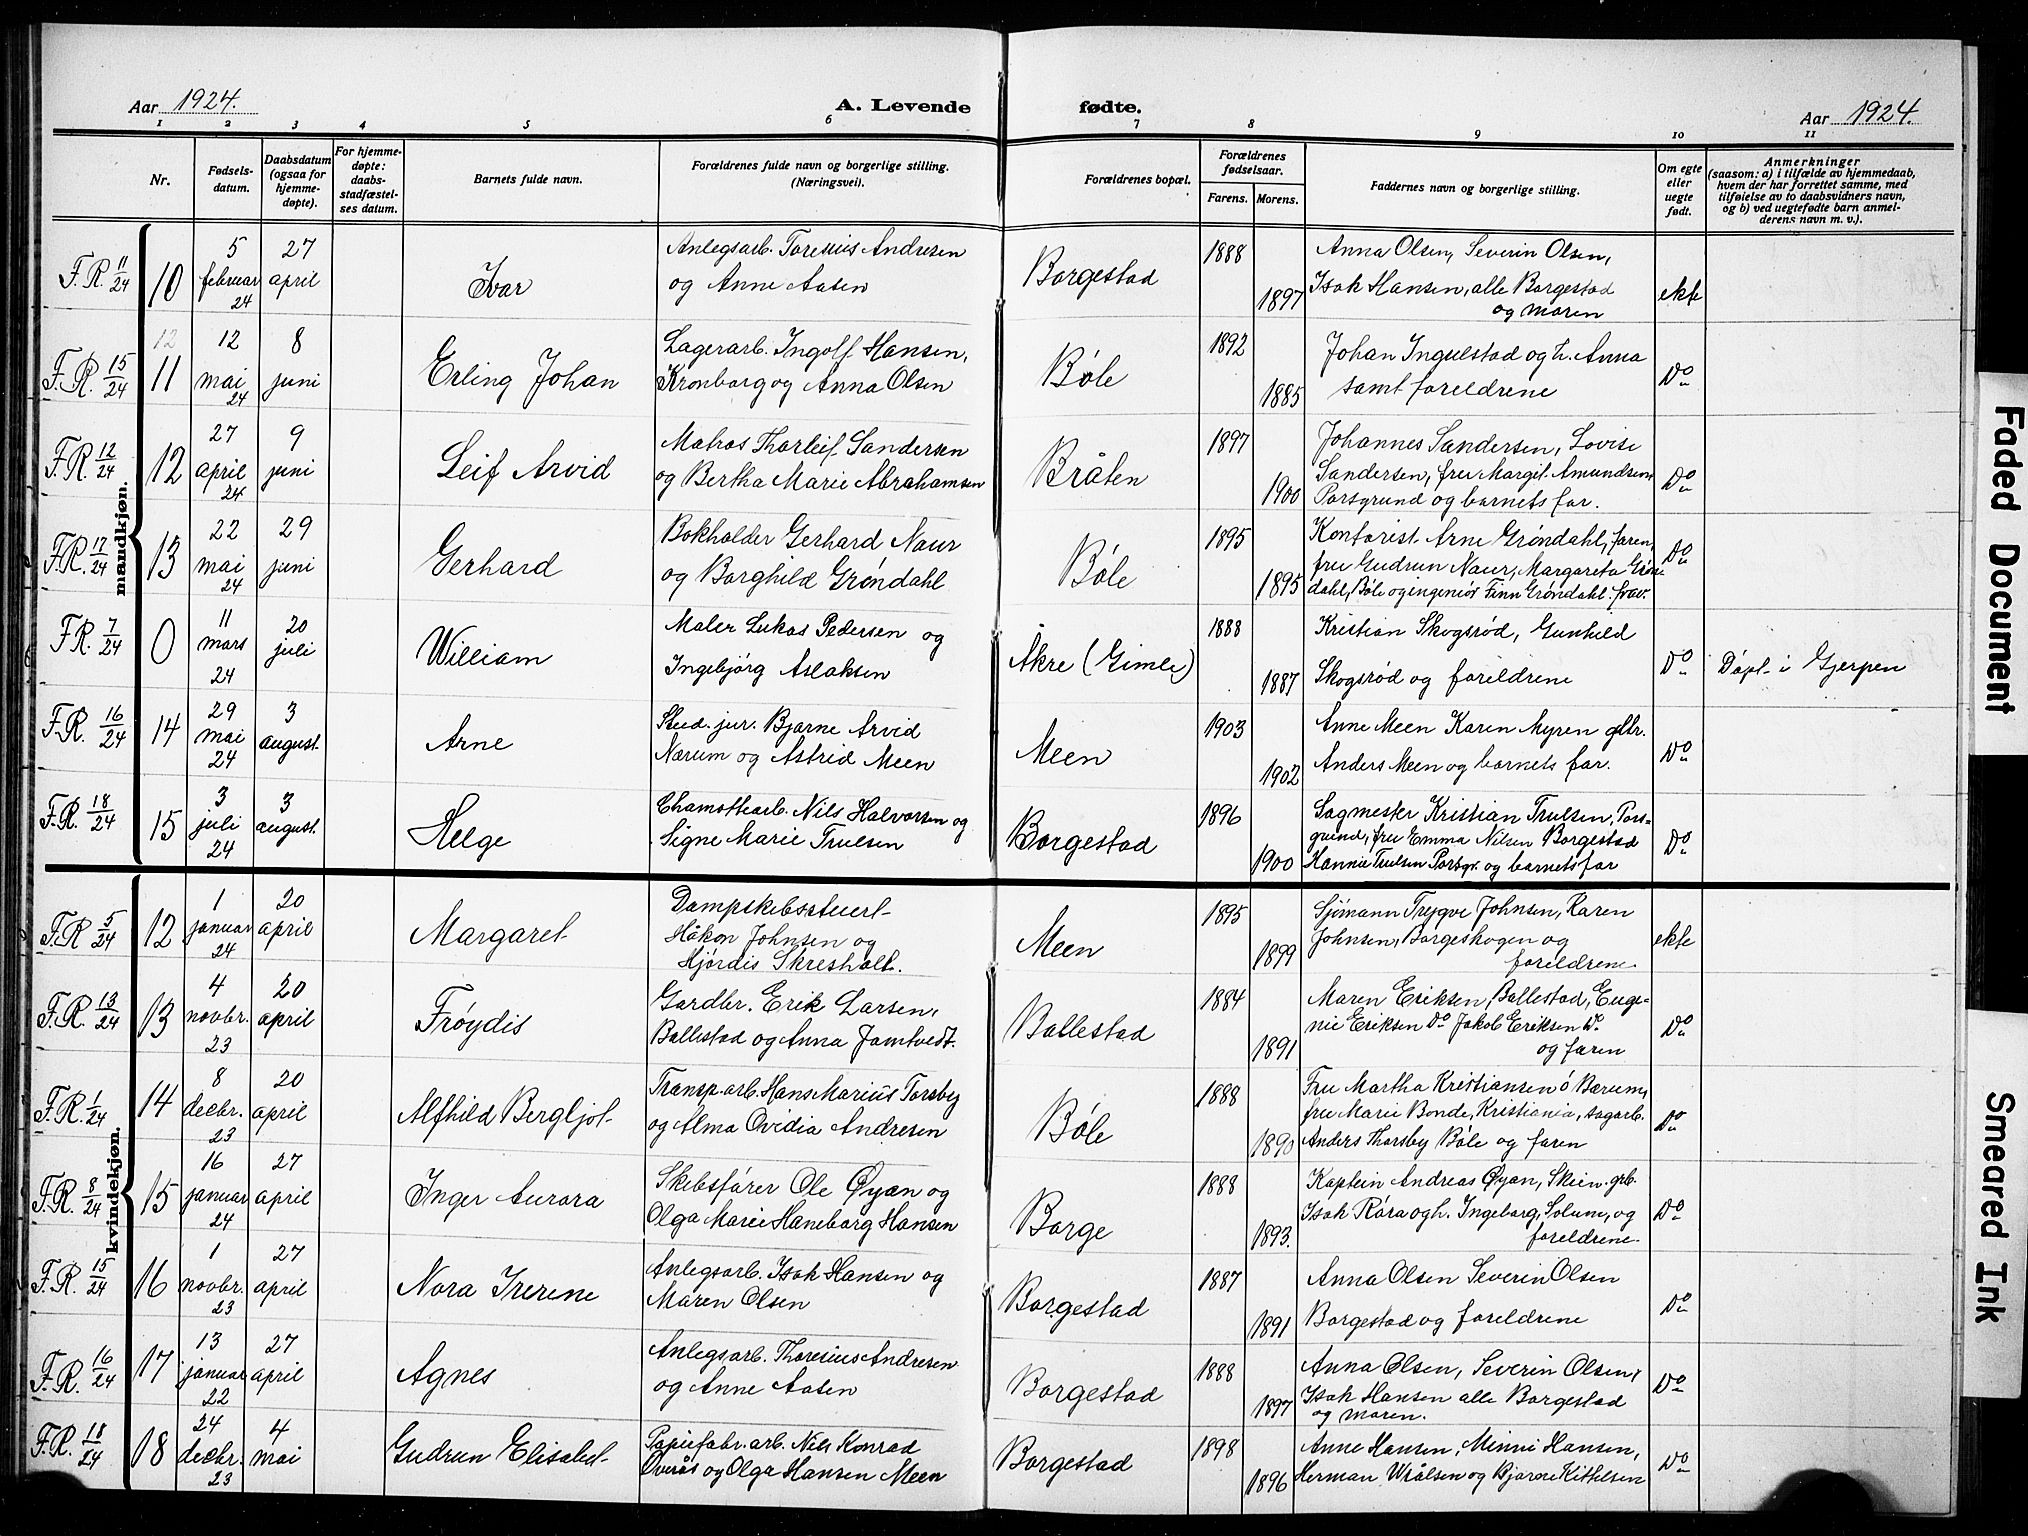 Aar 1924.
A. Levende fødte.
Aar 1924.
1 2 3 4 5 6 7 8 9 10 11
Nr.
Fødsels-
datum.
Daabsdatum
(ogsaa for
hjemme-
døpte).
For hjemme-
døpte:
daabs-
stadfæstel-
ses datum.
Barnets fulde navn.
Forældrenes fulde navn og borgerlige stilling.
(Næringsvei).
Forældrenes bopæl.
Forældrenes
fødselsaar.
Farens. Morens.
Faddernes navn og borgerlige stilling.
Om egte
eller
uegte
født.
Anmerkninger
(saasom: a) i tilfælde av hjemmedaab,
hvem der har forrettet samme, med
tilføielse av to daabsvidners navn,
og b) ved uegtefødte barn anmel-
derens navn m. v.).
mandkjøn.
F.R. 11/24
10
5
februar
24
27
april
Ivar
Anlegsarb. Toresius Andresen
og Anne Aasen
Borgestad
1888
1897
Anna Olsen, Severin Olsen,
Isak Hansen, alle Borgestad
og moren
ekte
F.R. 15/24
12
11
12
mai
24
8
juni
Erling Johan
Lagerarb. Ingolf Hansen,
Kronborg og Anna Olsen
Bøle
1892
1885
Johan Ingulstad og h. Anna
samt foreldrene
Do
F.R. 12/24
12
27
april
24
9
juni
Leif Arvid
Matros Thorleif Sandersen
og Bertha Marie Abrahamsen
Bråten
1897
1900
Johannes Sandersen, Lovise
Sandersen, fru Margit Amundsen
Porsgrund og barnets far.
Do
F.R. 17/24
13
22
mai
24
29
juni
Gerhard
Bokholder Gerhard Naur
og Borghild Grøndahl
Bøle
1895
1895
Kontorist Arne Grøndahl, faren,
fru Gudrun Naur, Margareta Grøn-
dahl, Bøle og ingeniør Finn Grøndahl frav.
Do
F.R. 7/24
0
11
mars
24
20
juli
William
Maler Lukas Pedersen og
Ingebjørg Aslaksen
Åkre (Gimle)
1888
1887
Kristian Skogsrød, Gunhild
Skogsrød og foreldrene
Do
Døpt i Gjerpen
F.R. 16/24
14
29
mai
24
3
august.
Arne
Stud. jur. Bjarne Arvid
Nærum og Astrid Meen
Meen
1903
1902
Anne Meen Karen Myren gbr.
Anders Meen og barnets far.
Do
F.R. 18/24
15
3
juli
24
3
august.
Helge
Chamottearb. Nils Halvorsen og
Signe Marie Trulsen
Borgestad
1896
1900
Sagmester Kristian Trulsen, Pors-
grund, fru Emma Nilsen Borgestad
Hanna Trulsen Porsgr. og barnets far
Do
kvindekjøn.
F.R. 5/24
12
1
januar
24
20
april
Margaret
Dampskibsstuert
Håkon Johnsen og
Hjørdis Skresholt.
Meen
1895
1899
Sjømann Trygve Johnsen, Karen
Johnsen, Borgeskogen og
foreldrene
ekte
F.R. 13/24
13
4
novbr.
23
20
april
Frøydis
Gardbr. Erik Larsen,
Ballestad og Anna Jamtvedt.
Ballestad
1884
1891
Maren Eriksen, Ballestad, Euge-
nie Eriksen Do Jakob Eriksen Do
og faren
Do
F.R. 1/24
14
8
decbr.
23
20
april
Alfhild Bergljot
Transp. arb. Hans Marius Torsby
og Alma Ovidia Andresen
Bøle
1888
1890
Fru Martha Kristiansen ö Bærum,
fru Marie Bonde, Kristiania, sagarb.
Anders Thorsby Bøle og faren
Do
F.R. 8/24
15
16
januar
24
27
april
Inger Aurora
Skibsfører Ole Øyan og
Olga Marie Haneborg Hansen
Borge
1888
1893.
Kaptein Andreas Øyan, Skien. grb.
Isak Røra og h. Ingeborg, Solum, og
foreldrene
Do
F.R. 15/24
16
1
novbr.
23
27
april
Nora Irerene
Anlegsarb. Isak Hansen og
Maren Olsen
Borgestad
1887
1891
Anna Olsen Severin Olsen
Borgestad og foreldrene
Do
F.R. 16/24
17
13
januar
22
27
april
Agnes
Anlegsarb. Thoresius Andresen
og Anne Aasen
Borgestad
1888
1897
Anna Olsen, Severin Olsen,
Isak Hansen alle Borgestad
og moren.
Do
F.R. 18/24
18
24
decbr.
23
4
mai
Gudrun Elisabet
Papirfabr. arb. Nils Konrad
Överås og Olga Hansen Meen
Borgestad
1898
1896
Anne Hansen, Minni Hansen,
Herman Wrålsen og Bjarne Kittilsen
Do
Faded Document
Smeared Ink